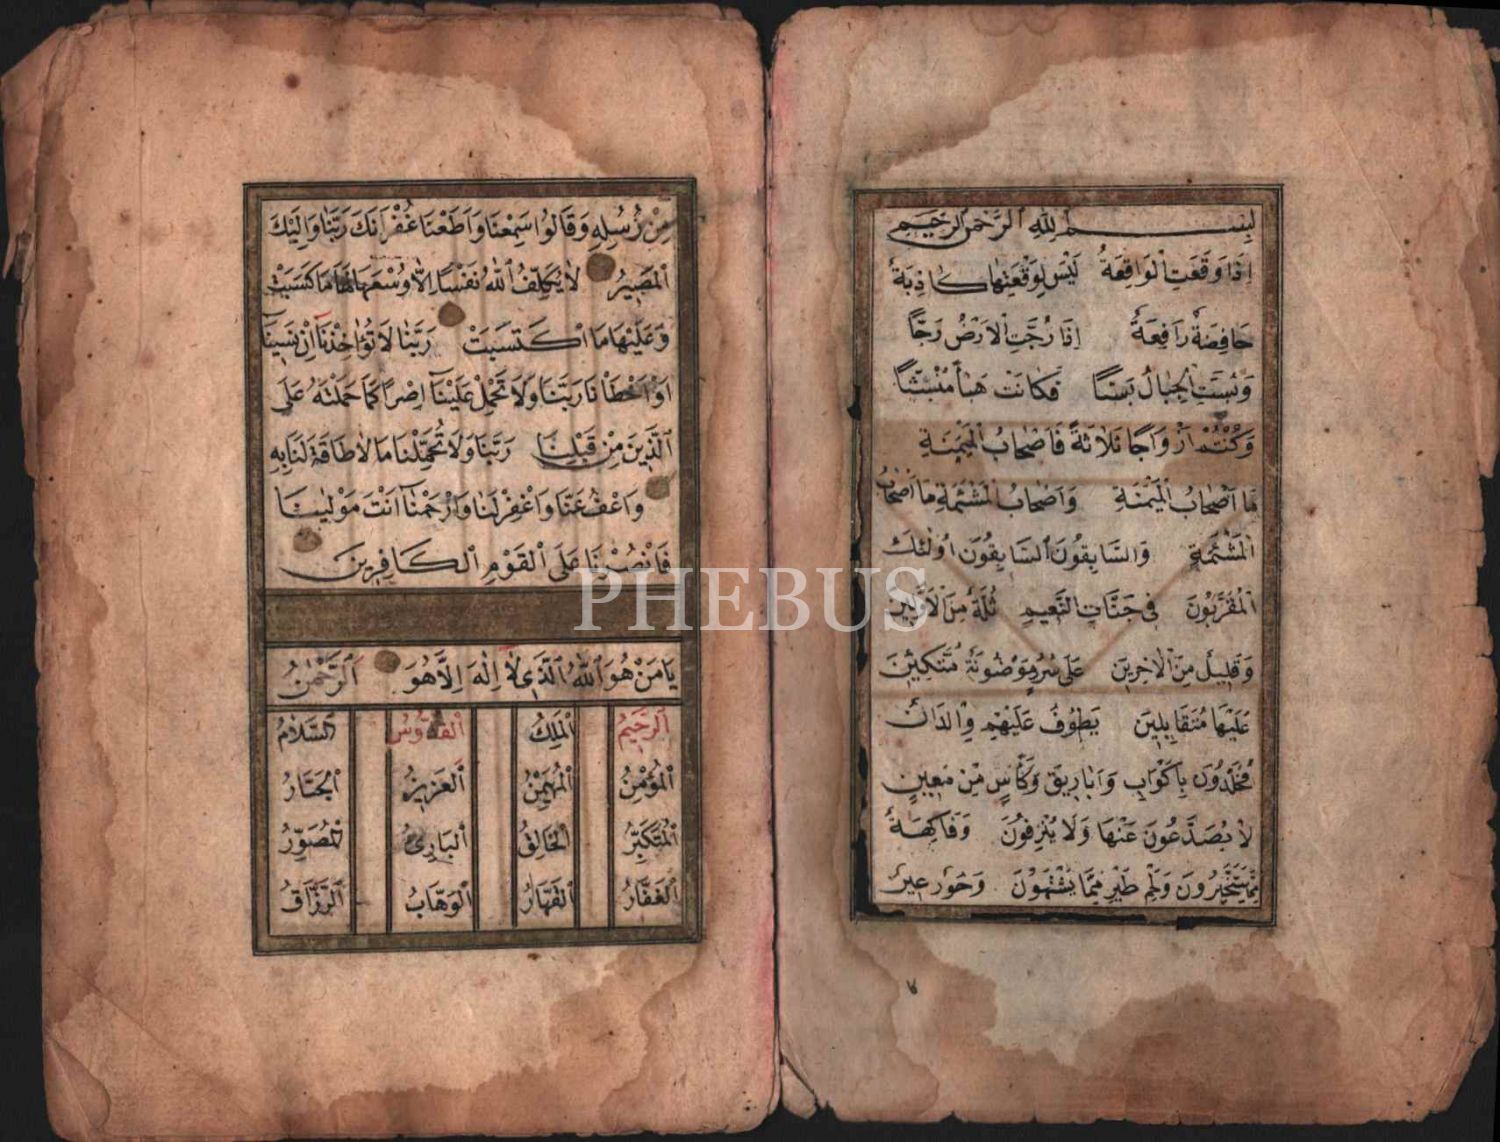 بِسْمِ اللهِ الرَّحْمٰنِ الرَّحِيمِ
اِذَا وَقَعَتِ الْوَاقِعَةُ لَيْسَ لِوَقْعَتِهَا كَاذِبَةٌ
خَافِضَةٌ رَافِعَةٌ اِذَا رُجَّتِ الْاَرْضُ رَجًّا
وَبُسَّتِ الْجِبَالُ بَسًّا فَكَانَتْ هَبَاءً مُنْبَثًّا
وَكُنْتُمْ اَزْوَاجًا ثَلَاثَةً فَاَصْحَابُ الْمَيْمَنَةِ
مَا اَصْحَابُ الْمَيْمَنَةِ وَاَصْحَابُ الْمَشْئَمَةِ مَا اَصْحَابُ
الْمَشْئَمَةِ وَالسَّابِقُونَ السَّابِقُونَ اُولٰئِكَ
الْمُقَرَّبُونَ فِى جَنَّاتِ النَّعِيمِ ثُلَّةٌ مِنَ الْاَوَّلِينَ
وَقَلِيلٌ مِنَ الْاٰخِرِينَ عَلٰى سُرُرٍ مَوْضُونَةٍ مُتَّكِئِينَ
عَلَيْهَا مُتَقَابِلِينَ يَطُوفُ عَلَيْهِمْ وِلْدَانٌ
مُخَلَّدُونَ بِاَكْوَابٍ وَاَبَارِيقَ وَكَأْسٍ مِنْ مَعِينٍ
لَا يُصَدَّعُونَ عَنْهَا وَلَا يُنْزِفُونَ وَفَاكِهَةٍ
مِمَّا يَتَخَيَّرُونَ وَلَحْمِ طَيْرٍ مِمَّا يَشْتَهُونَ وَحُورٌ عِينٌ
مِنْ رُسُلِهِ وَقَالُوا سَمِعْنَا وَاَطَعْنَا غُفْرَانَكَ رَبَّنَا وَاِلَيْكَ
الْمَصِيرُ لَا يُكَلِّفُ اللهُ نَفْسًا اِلَّا وُسْعَهَا لَهَا مَا كَسَبَتْ
وَعَلَيْهَا مَا اكْتَسَبَتْ رَبَّنَا لَا تُؤَاخِذْنَا اِنْ نَسِينَا
اَوْ اَخْطَأْنَا رَبَّنَا وَلَا تَحْمِلْ عَلَيْنَا اِصْرًا كَمَا حَمَلْتَهُ عَلَى
الَّذِينَ مِنْ قَبْلِنَا رَبَّنَا وَلَا تُحَمِّلْنَا مَا لَا طَاقَةَ لَنَا بِهِ
وَاعْفُ عَنَّا وَاغْفِرْ لَنَا وَارْحَمْنَا اَنْتَ مَوْلٰينَا
فَانْصُرْنَا عَلَى الْقَوْمِ الْكَافِرِينَ
يَا مَنْ هُوَ اللهُ الَّذِى لَا اِلٰهَ اِلَّا هُوَ الرَّحْمٰنُ
الرَّحِيمُ الْمَلِكُ الْقُدُّوسُ السَّلَامُ
الْمُؤْمِنُ الْمُهَيْمِنُ الْعَزِيزُ الْجَبَّارُ
الْمُتَكَبِّرُ الْخَالِقُ الْبَارِئُ الْمُصَوِّرُ
الْغَفَّارُ الْقَهَّارُ الْوَهَّابُ الرَّزَّاقُ
PHEBUS